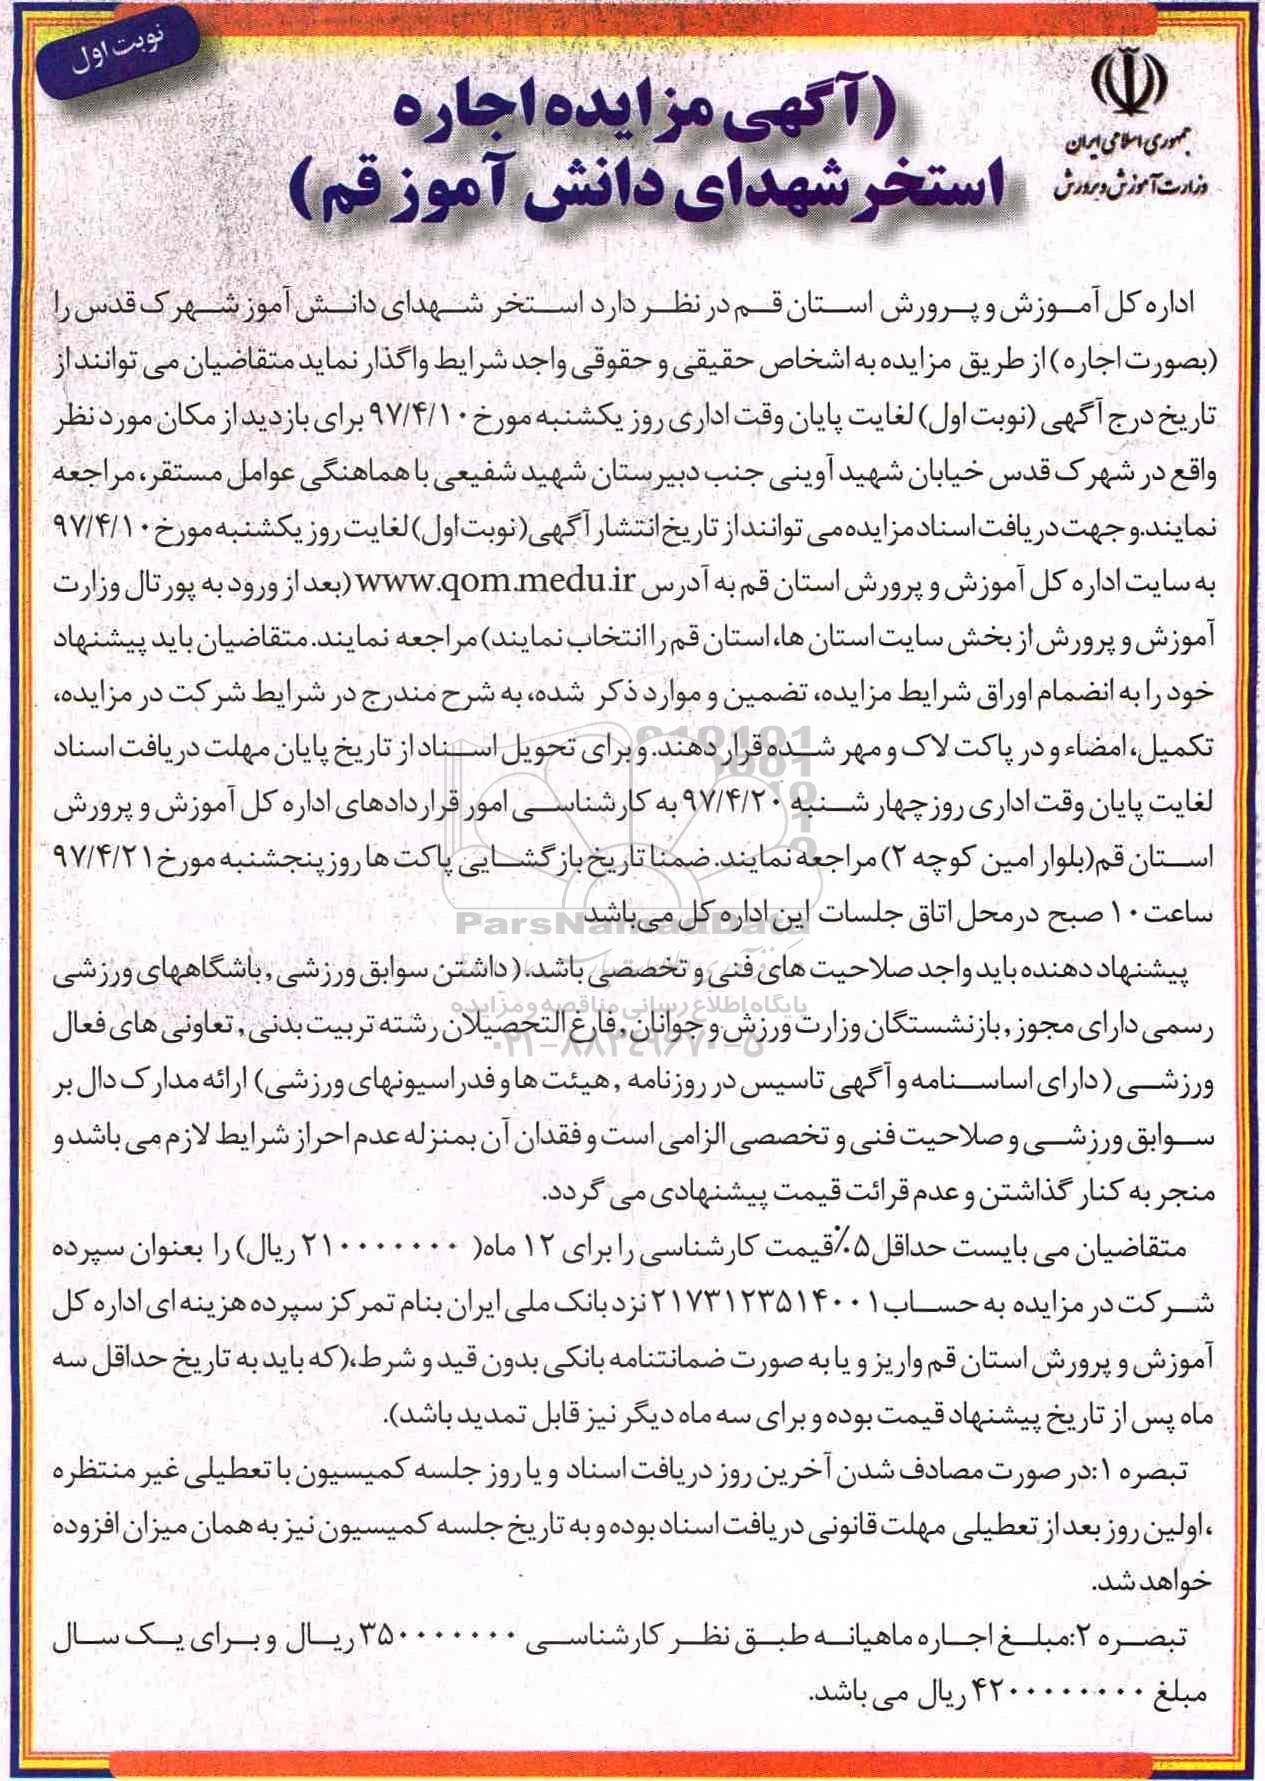 نوبت اول
جمهوری اسلامی ایران
وزارت آموزش و پرورش
(آگهی مزایده اجاره
استخر شهدای دانش آموز قم)
اداره کل آموزش و پرورش استان قم در نظر دارد استخر شهدای دانش آموز شهرک قدس را
(بصورت اجاره) از طریق مزایده به اشخاص حقیقی و حقوقی واجد شرایط واگذار نماید متقاضیان می توانند از
تاریخ درج آگهی (نوبت اول) لغایت پایان وقت اداری روز یکشنبه مورخ ۹۷/۴/۱۰ برای بازدید از مکان مورد نظر
واقع در شهرک قدس خیابان شهید آوینی جنب دبیرستان شهید شفیعی با هماهنگی عوامل مستقر، مراجعه
نمایند.و جهت دریافت اسناد مزایده می توانند از تاریخ انتشار آگهی (نوبت اول) لغایت روز یکشنبه مورخ ۹۷/۴/۱۰
به سایت اداره کل آموزش و پرورش استان قم به آدرس www.qom.medu.ir (بعد از ورود به پورتال وزارت
آموزش و پرورش از بخش سایت استان ها، استان قم را انتخاب نمایند) مراجعه نمایند. متقاضیان باید پیشنهاد
خود را به انضمام اوراق شرایط مزایده، تضمین و موارد ذکر شده، به شرح مندرج در شرایط شرکت در مزایده،
تکمیل، امضاء و در پاکت لاک و مهر شده قرار دهند. و برای تحویل اسناد از تاریخ پایان مهلت دریافت اسناد
لغایت پایان وقت اداری روز چهار شنبه ۹۷/۴/۲۰ به کارشناسی امور قراردادهای اداره کل آموزش و پرورش
استان قم(بلوار امین کوچه ۲) مراجعه نمایند. ضمنا تاریخ بازگشایی پاکت ها روز پنجشنبه مورخ ۹۷/۴/۲۱
ساعت ۱۰ صبح در محل اتاق جلسات این اداره کل می باشد
ParsNamadData
پیشنهاد دهنده باید واجد صلاحیت های فنی و تخصصی باشد. (داشتن سوابق ورزشی , باشگاههای ورزشی
پایگاه اطلاع رسانی مناقصه و مزایده
رسمی دارای مجوز , بازنشستگان وزارت ورزش و جوانان , فارغ التحصیلان رشته تربیت بدنی , تعاونی های فعال
۰۲۱-۸۸۳۴۹۶۷۰-۵
ورزشی (دارای اساسنامه و آگهی تاسیس در روزنامه , هیئت ها و فدراسیونهای ورزشی) ارائه مدارک دال بر
سوابق ورزشی و صلاحیت فنی و تخصصی الزامی است و فقدان آن بمنزله عدم احراز شرایط لازم می باشد و
منجر به کنار گذاشتن و عدم قرائت قیمت پیشنهادی می گردد.
متقاضیان می بایست حداقل ۵٪ قیمت کارشناسی را برای ۱۲ ماه( ۲۱۰۰۰۰۰۰۰ ریال) را بعنوان سپرده
شرکت در مزایده به حساب ۲۱۷۳۱۲۳۵۱۴۰۰۱ نزد بانک ملی ایران بنام تمرکز سپرده هزینه ای اداره کل
آموزش و پرورش استان قم واریز و یا به صورت ضمانتنامه بانکی بدون قید و شرط،(که باید به تاریخ حداقل سه
ماه پس از تاریخ پیشنهاد قیمت بوده و برای سه ماه دیگر نیز قابل تمدید باشد).
تبصره ۱:در صورت مصادف شدن آخرین روز دریافت اسناد و یا روز جلسه کمیسیون با تعطیلی غیر منتظره
،اولین روز بعد از تعطیلی مهلت قانونی دریافت اسناد بوده و به تاریخ جلسه کمیسیون نیز به همان میزان افزوده
خواهد شد.
تبصره ۲:مبلغ اجاره ماهیانه طبق نظر کارشناسی ۳۵۰۰۰۰۰۰۰ ریال و برای یک سال
مبلغ ۴۲۰۰۰۰۰۰۰۰ ریال می باشد.